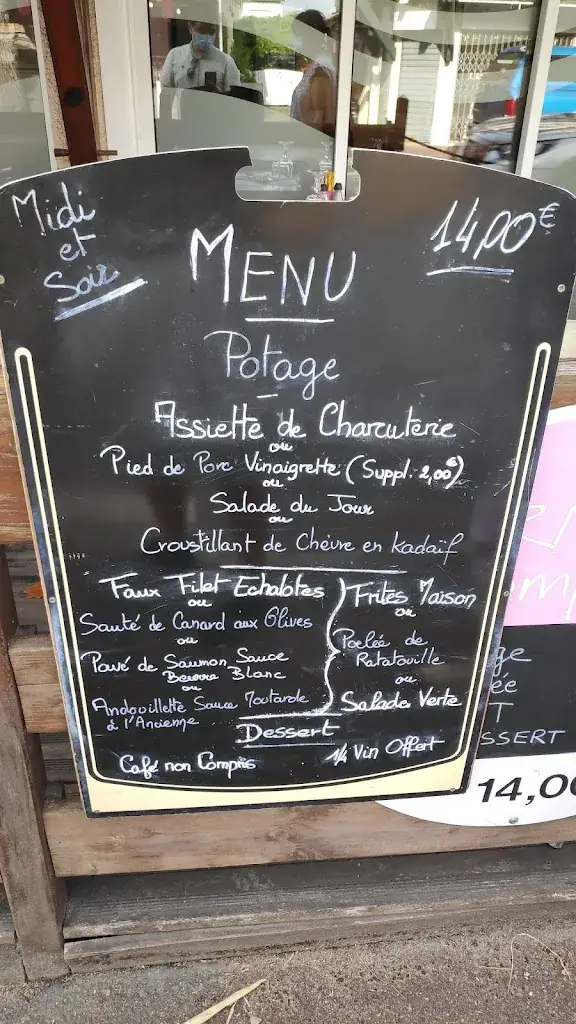 Midi
et
Soir
14,00€
MENU
Potage
Assiette de Charcuterie
ou
Pied de Porc Vinaigrette (Suppl. 2,00€)
ou
Salade du Jour
ou
Croustillant de Chèvre en Kadaïf
Faux Filet Echalotes
ou
Sauté de Canard aux Olives
ou
Pavé de Saumon Sauce
Beurre Blanc
ou
Andouillette Sauce Moutarde
à l'Ancienne
Frites Maison
ou
Poelée de
Ratatouille
ou
Salade Verte
Dessert
Café non Compris
1/4 Vin Offert
SSERT
14,0